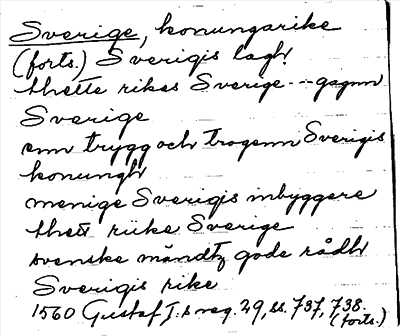 Sverige, konungarike
(forts.) Sverigis lagh
thette rikes Sverige --- gagnn
Sverige
enn trygg och trogenn Sverigis
konungh
menige Sverigis inbyggere
thett riike Sverige
svenske mändtz gode rådh
Sverigis rike
1560 Gustaf I:s reg. 29, ss. 737, 738.
(forts.)